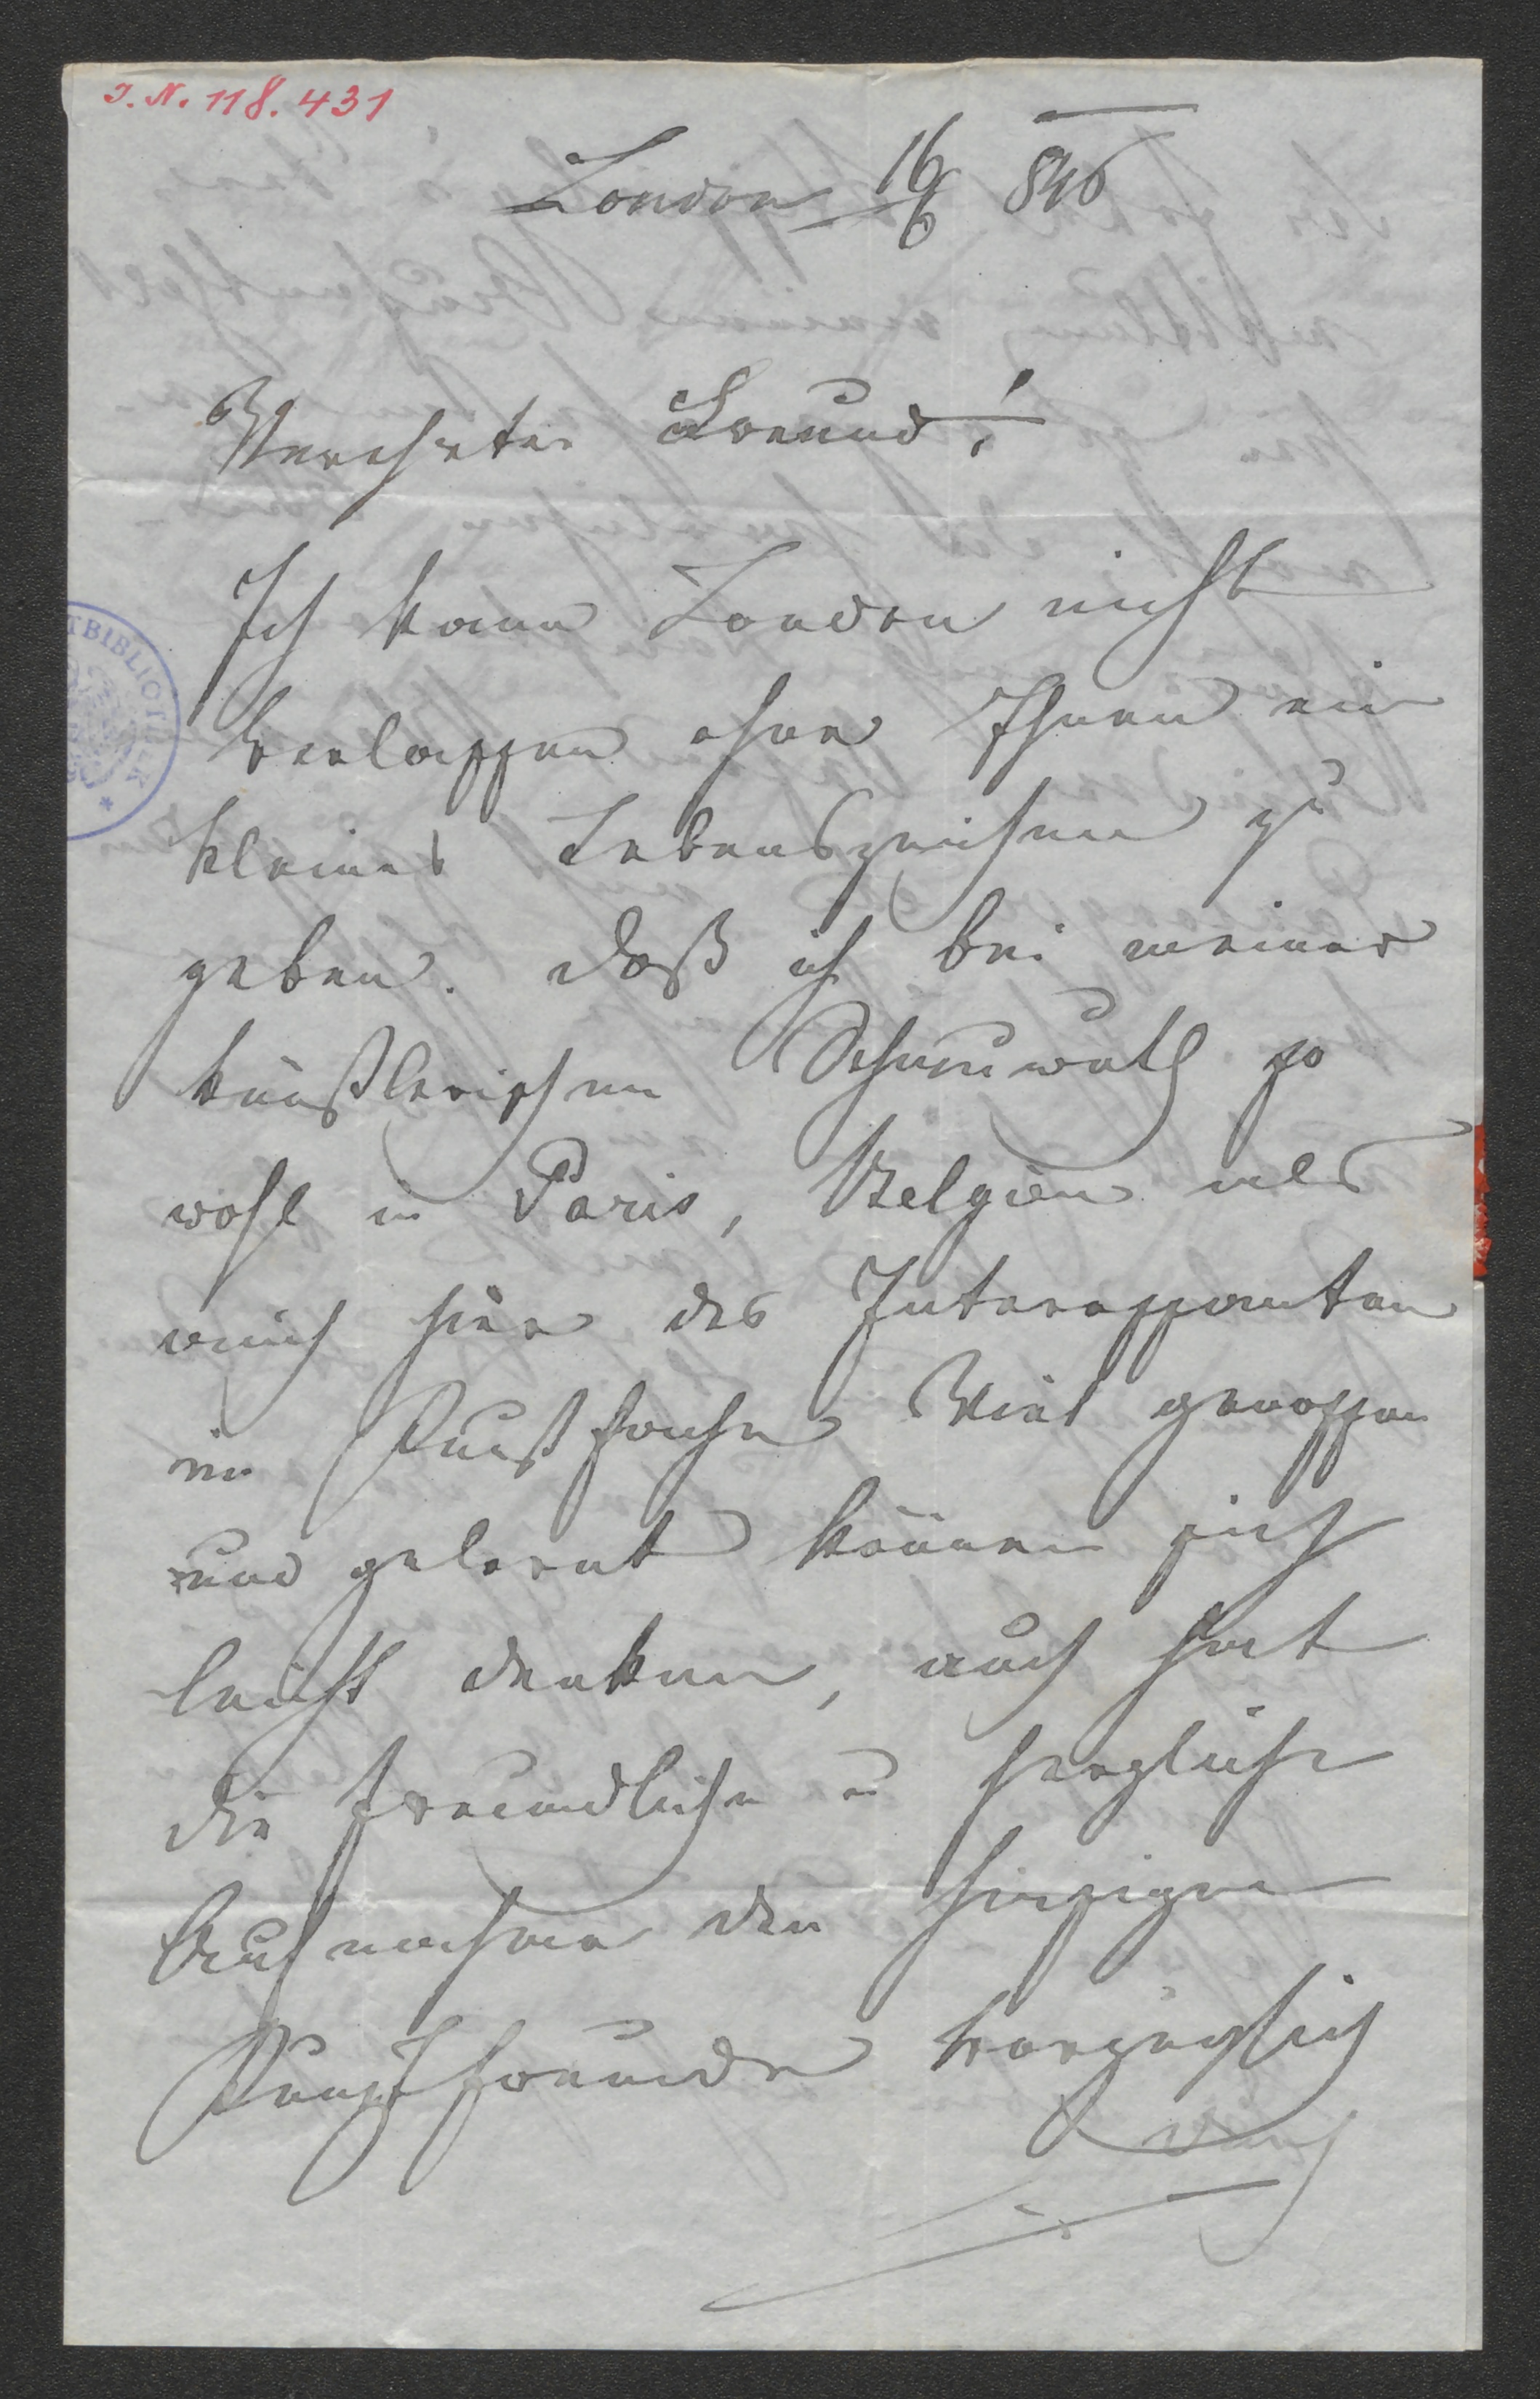 I. N. 118.431
London 16/6 846
Verehrter Freund!
Ich kann London nicht
verlassen ohne Ihnen ein
kleines Lebenszeichen zu
geben. Daß ich bei meiner
künstlerischen so
wohl in Paris, Belgien als
auch hier des Interessanten
im Kunstfache Viel genossen
und gelernt können sich
leicht denken, auch hat
die freundliche u herzliche
Aufnahme der hiesigen
Kunstfreunde vorzüglich
TBIBLIOTHEK